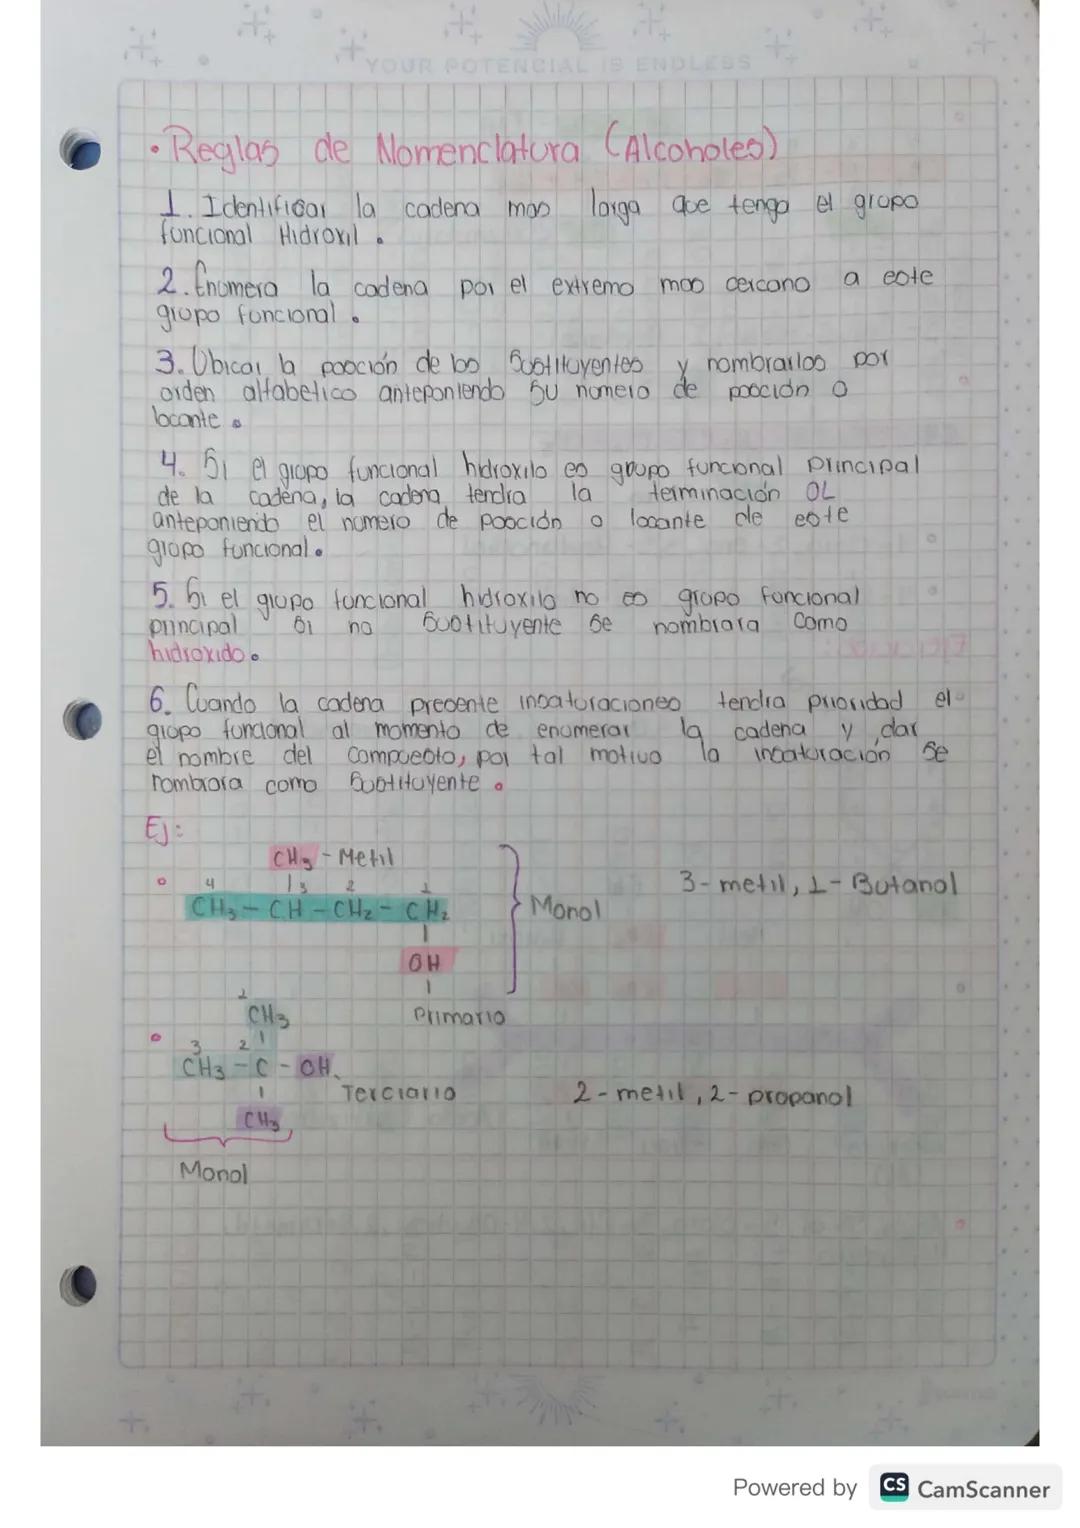 YOUR POTENCIAL IS ENDLESS
• Reglas de Nomenclatura (Alcoholes)
1. Identificar la cadena mas larga que tenga el grupo
funcional Hidroxil.
2. Enumera la cadena por el extremo mas cercano a este
grupo funcional.
3. Ubicar la posción de los Sustituyentes y nombrarlos por
orden alfabetico anteponiendo su numero de posción o
locante.
4. Si el grupo funcional hidroxilo es grupo funcional principal
de la cadena, la cadena tendra la terminación OL
anteponiendo el numero de posción o locante de este
grupo funcional.
5. Si el grupo funcional hidroxilo no es grupo funcional
principal si no Sustituyente se nombrara como
hidroxido.
6. Cuando la cadena presente insaturaciones tendra prioridad el
grupo funcional al momento de enumerar la cadena y dar
el nombre del compuesto, por tal motivo la insaturación se
nombrara como Sustituyente.
Ej:
CH3 - Metil
4 3 2 1
CH3 - CH - CH2 - CH2
OH
Primario
Monol
3-metil, 1-Butanol
1
CH3
3 2
CH3 - C - OH
Terciario
CH3
Monol
2-metil, 2-propanol
Powered by CS CamScanner